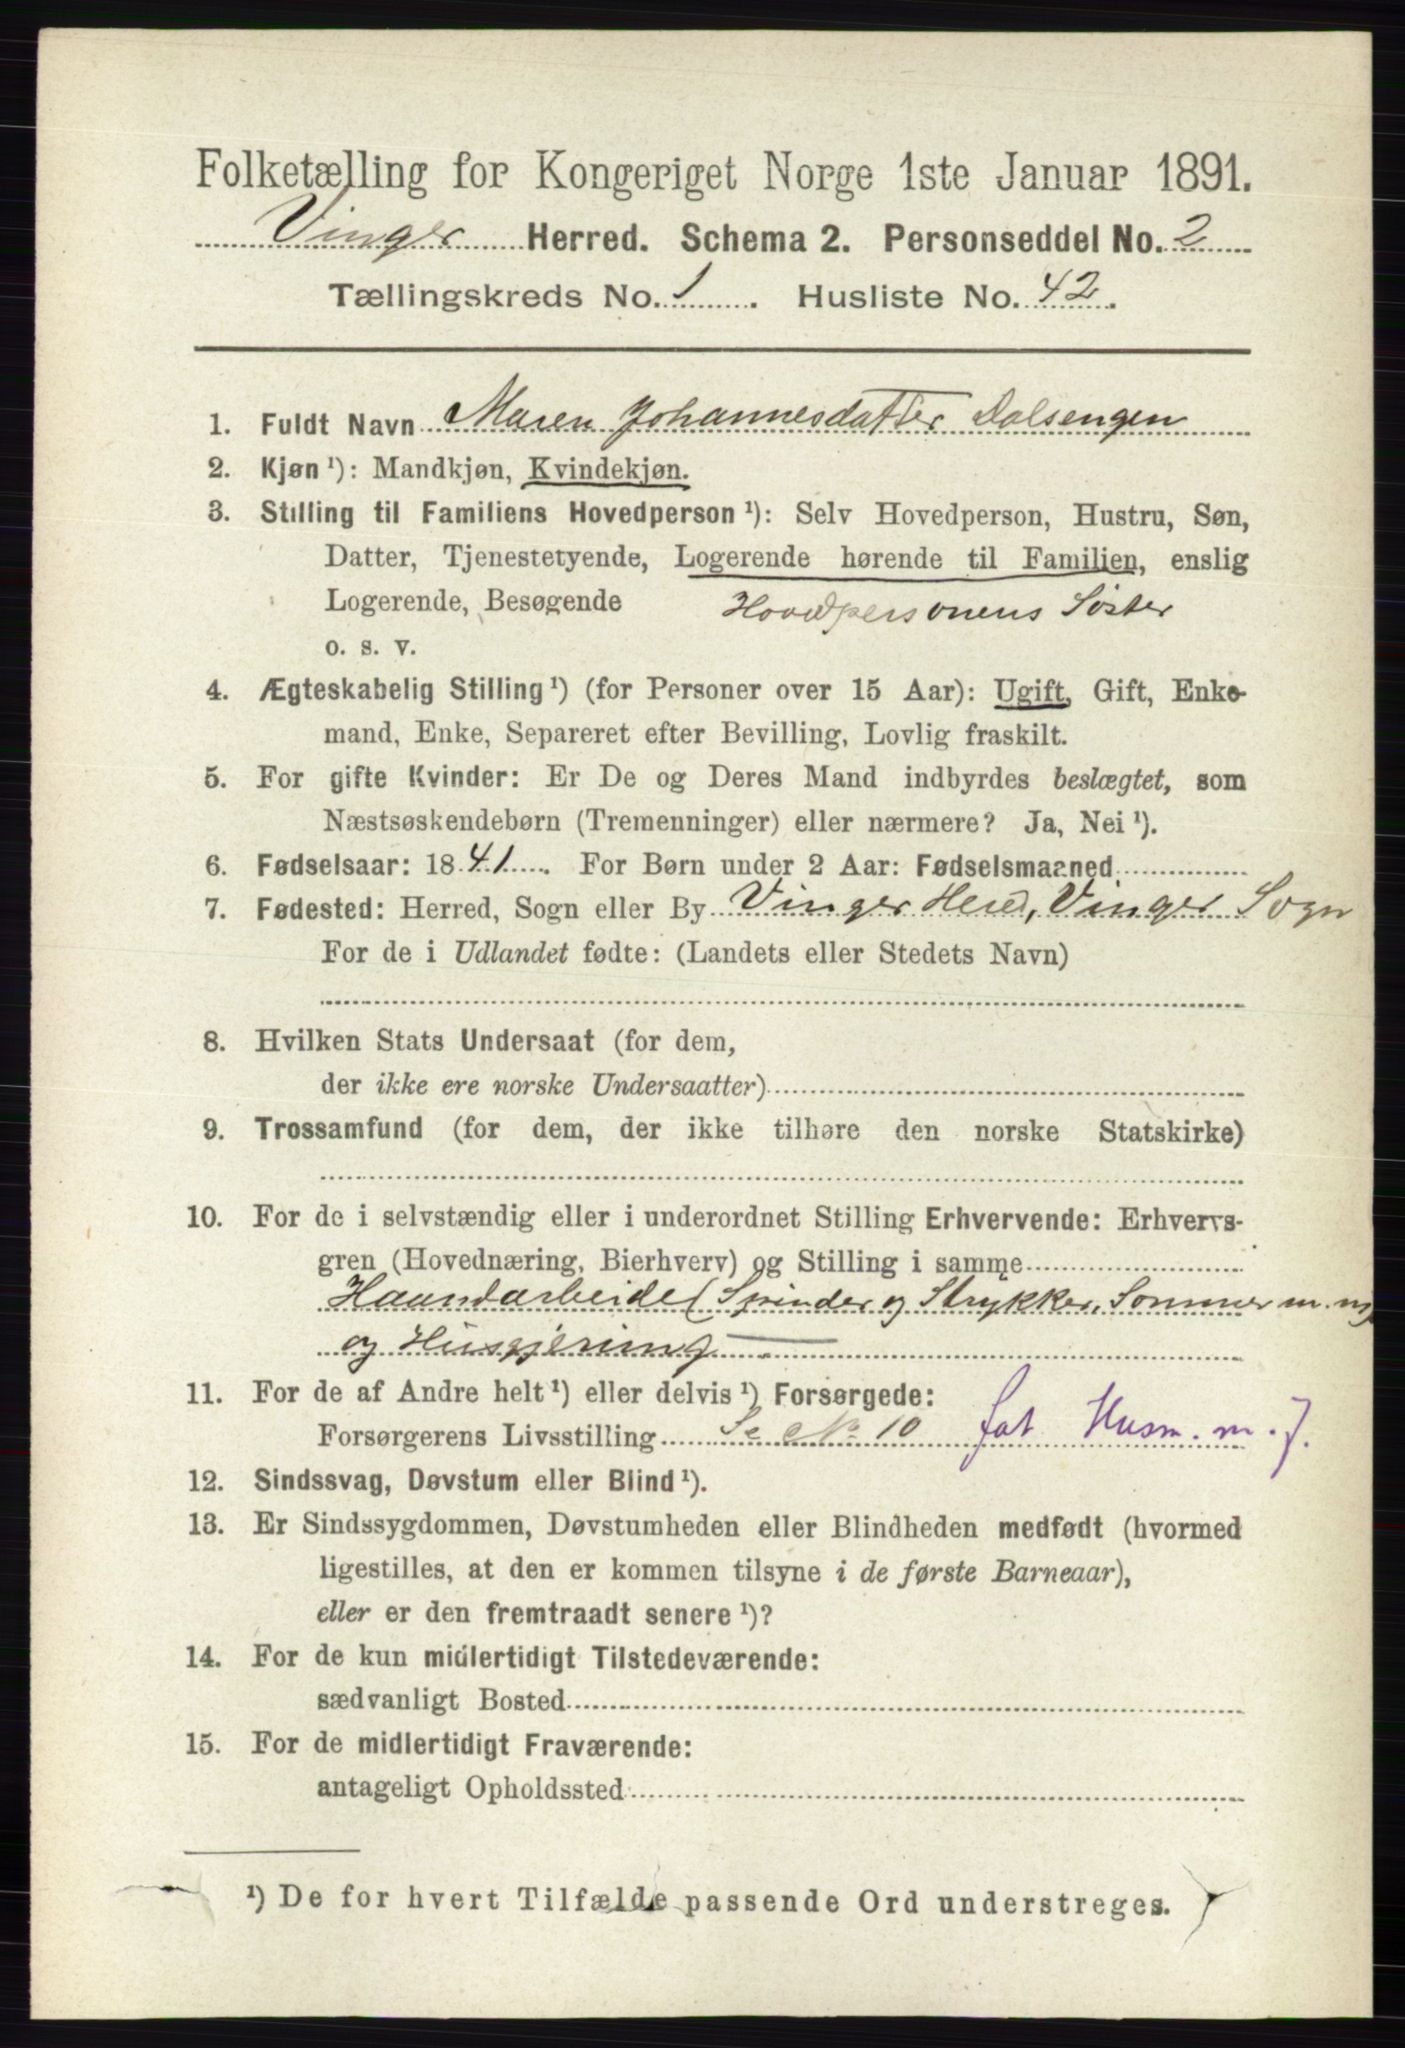 Folketælling for Kongeriget Norge 1ste Januar 1891.
Vinger Herred. Schema 2. Personseddel No. 2
Tællingskreds No. 1. Husliste No. 42.
1. Fuldt Navn Maren Johannesdatter Dalsengen
2. Kjøn ¹): Mandkjøn, Kvindekjøn.
3. Stilling til Familiens Hovedperson ¹): Selv Hovedperson, Hustru, Søn,
Datter, Tjenestetyende, Logerende hørende til Familien, enslig
Logerende, Besøgende Hovedpersonens Søster
o. s. v.
4. Ægteskabelig Stilling ¹) (for Personer over 15 Aar): Ugift, Gift, Enke-
mand, Enke, Separeret efter Bevilling, Lovlig fraskilt.
5. For gifte Kvinder: Er De og Deres Mand indbyrdes beslægtet, som
Næstsøskendebørn (Tremenninger) eller nærmere? Ja, Nei ¹).
6. Fødselsaar: 1841. For Børn under 2 Aar: Fødselsmaaned
7. Fødested: Herred, Sogn eller By Vinger Hered, Vinger Sogn
For de i Udlandet fødte: (Landets eller Stedets Navn)
8. Hvilken Stats Undersaat (for dem,
der ikke ere norske Undersaatter)
9. Trossamfund (for dem, der ikke tilhøre den norske Statskirke)
10. For de i selvstændig eller i underordnet Stilling Erhvervende: Erhvervs-
gren (Hovednæring, Bierhverv) og Stilling i samme
Haandarbeide (Spinder og Strykker, Sommer m.m)
og Husgjerning
11. For de af Andre helt ¹) eller delvis ¹) Forsørgede:
Forsørgerens Livsstilling Se No 10 fat Husm. m. J.
12. Sindssvag, Døvstum eller Blind ¹).
13. Er Sindssygdommen, Døvstumheden eller Blindheden medfødt (hvormed
ligestilles, at den er kommen tilsyne i de første Barneaar),
eller er den fremtraadt senere ¹)?
14. For de kun midlertidigt Tilstedeværende:
sædvanligt Bosted
15. For de midlertidigt Fraværende:
antageligt Opholdssted
¹) De for hvert Tilfælde passende Ord understreges.